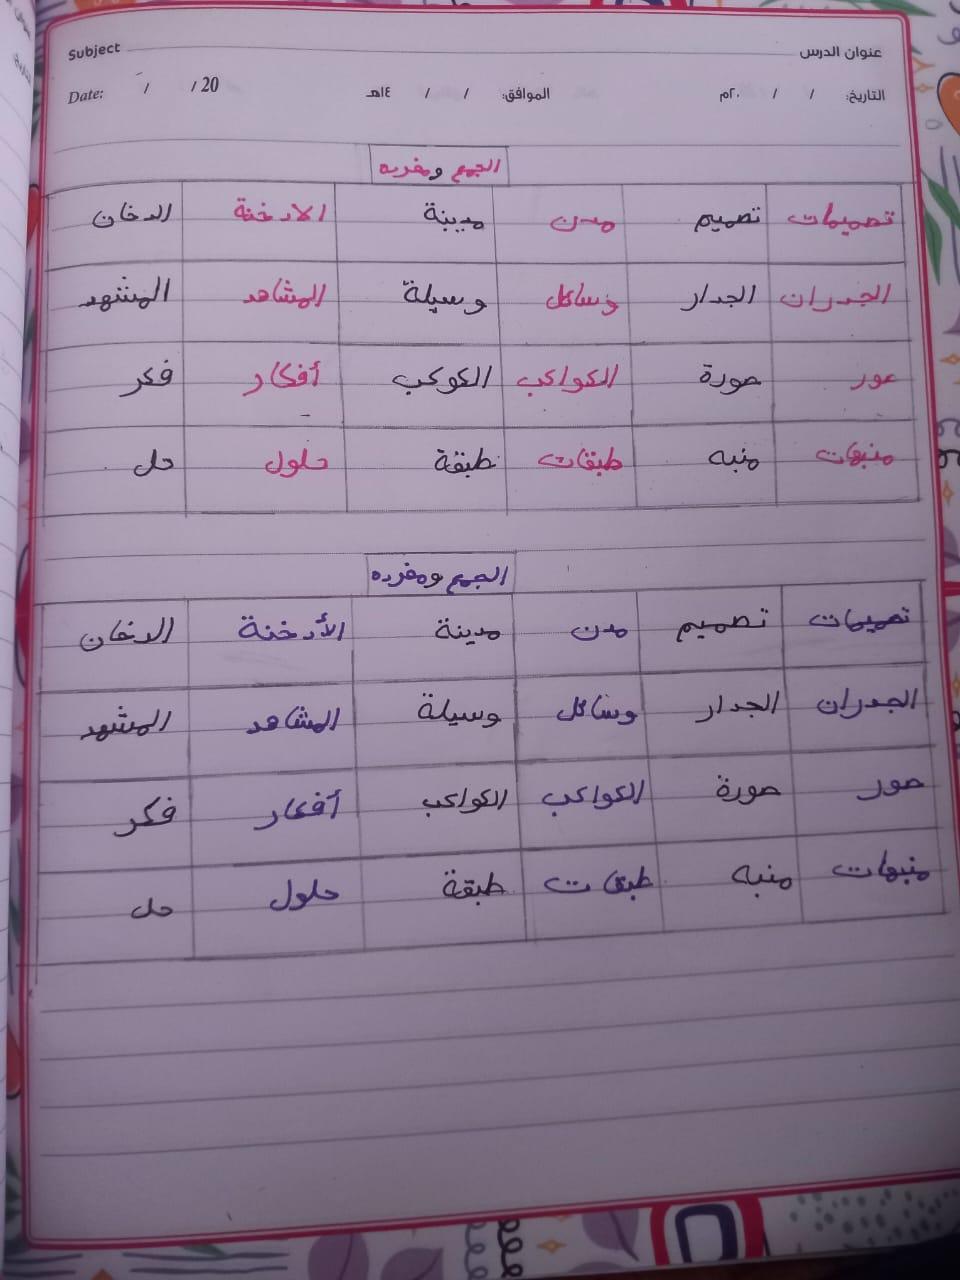 عنوان الدرس Subject
التاريخ: / / ٢٠م الموافق: / / ١٤هـ Date: / / 20
الجمع ومفرده
تصميمات تصميم مدن مدينة الادخنة الدخان
الجدران الجدار وسائل وسيلة المشاهد المشهد
صور صورة الكواكب الكوكب أفكار فكر
منبهات منبه طبقات طبقة حلول حل
الجمع ومفرده
تصميمات تصميم مدن مدينة الأدخنة الدخان
الجدران الجدار وسائل وسيلة المشاهد المشهد
صور صورة الكواكب الكواكب أفكار فكر
منبهات منبه طبقات طبقة حلول حل